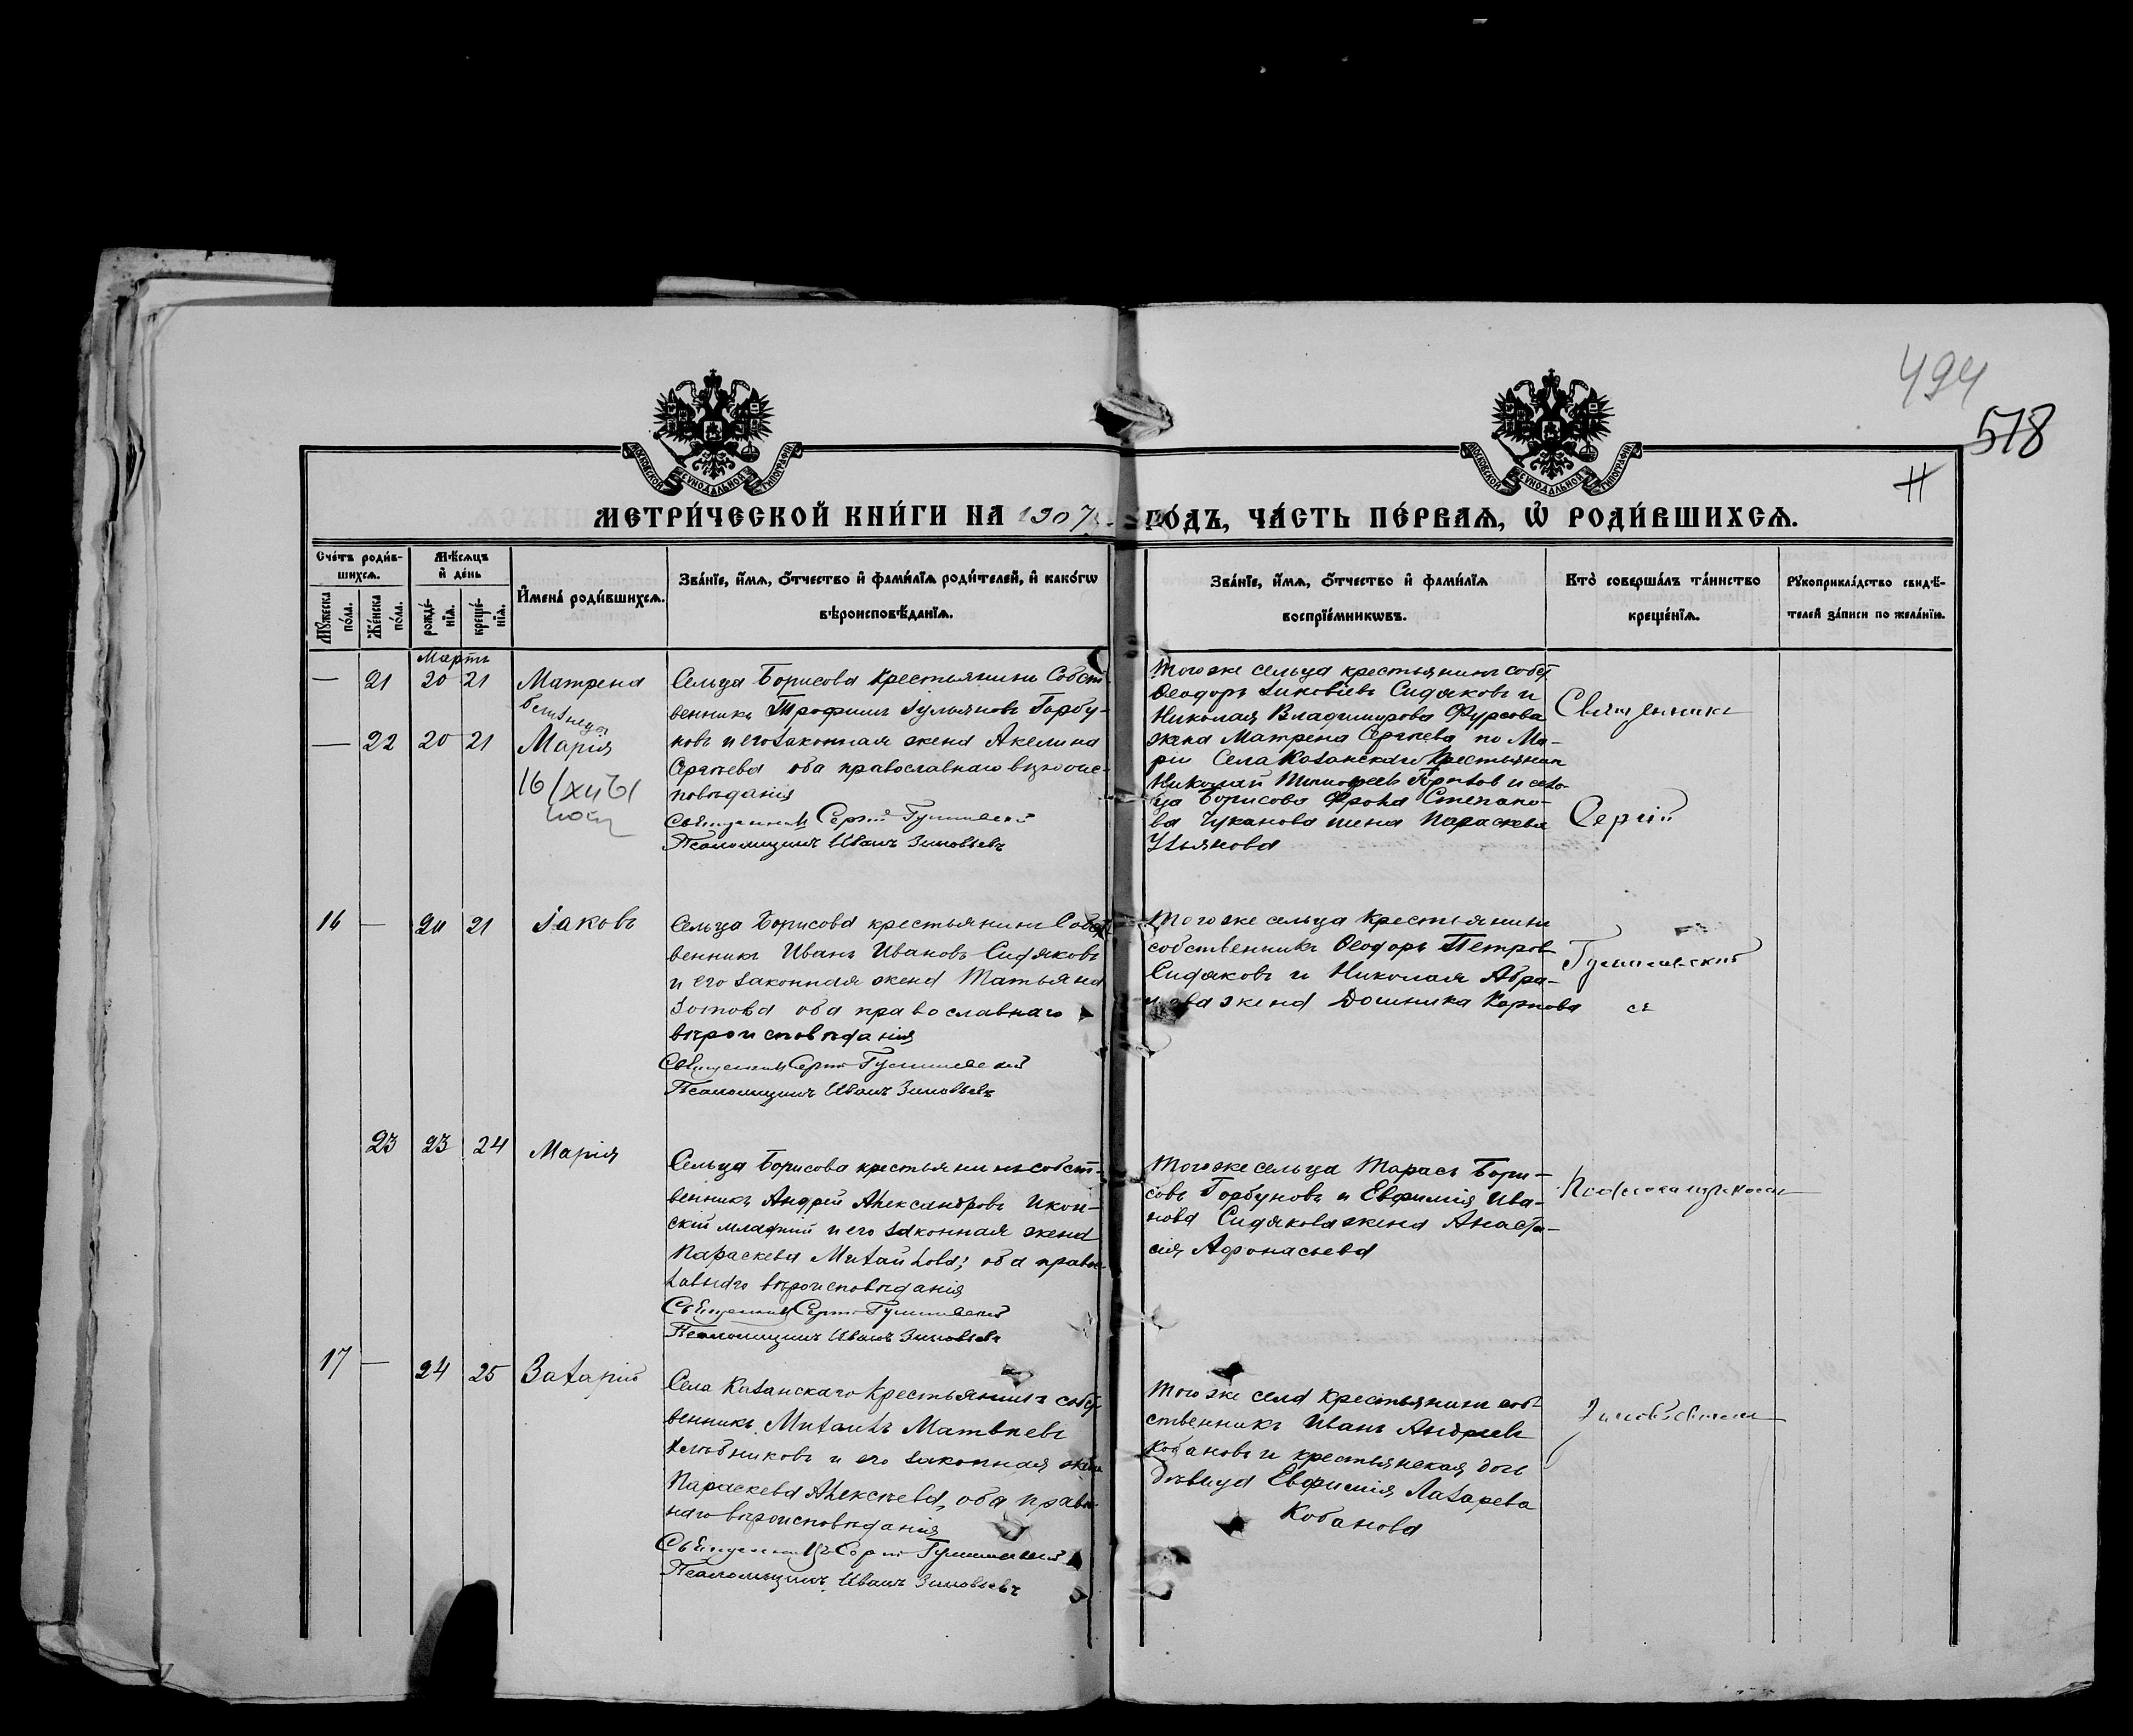 494
578
11
МОСКОВСКОЙ СУНОДАЛЬНОЙ ТИПОГРАФІИ
МОСКОВСКОЙ СУНОДАЛЬНОЙ ТИПОГРАФІИ
МЕТРИ́ЧЕСКОЙ КНИ́ГИ НА 1907 ГО́ДЪ, ЧА́СТЬ ПЕ́РВАѦ, Ѡ҆ РОДИ́ВШИХСѦ.
Сче́тъ роди́в-
шихсѧ.
Мѣ́сѧцъ
и҆ де́нь
Му́жеска по́ла.
Же́нска по́ла.
рожде́-
нїѧ.
креще́-
нїѧ.
И҆мена̀ роди́вшихсѧ.
Зва́нїе, и҆́мѧ, ѻ҆́тчество и҆ фами́лїѧ роди́телей, и҆ како́гѡ
вѣроисповѣ́данїѧ.
Зва́нїе, и҆́мѧ, ѻ҆́тчество и҆ фами́лїѧ
воспрїе́мникѡвъ.
Кто̀ соверша́лъ та́инство
креще́нїѧ.
Рꙋкоприкла́дство свидѣ́-
телей за́писи по жела́нїю.
Мартъ
— 21 20 21 Матрена
близнецы
— 22 20 21 Марія
Сельца Борисова крестьянинъ Собст-
венникъ Трофимъ Гульяновъ Горбу-
новъ и его законная жена Акелина
Сергѣева оба православнаго вѣроис-
повѣданія
Священникъ Сергій Гумилевскій
Псаломщикъ Иванъ Зиновьевъ
Того же сельца крестьянинъ собст
Ѳеодоръ Сидяковъ и
Николая Владимирова Фурсова
жена Матрена Сергѣева по Ма-
ріи Села Казанскаго Крестьянин
Николай и сель-
ца Борисова Фрола Степано-
ва Чуканова жена Параскева
Ульянова
Священникъ
Сергій
16 — 20 21 Іаковъ
Сельца Борисова крестьянинъ Собст
венникъ Иванъ Ивановъ Сидяковъ
и его законная жена Татьяна
Зотова оба православнаго
вѣроисповѣданія
Священникъ Сергій Гумилевскій
Псаломщикъ Иванъ Зиновьевъ
Того же сельца Крестьянинъ
собственникъ Ѳеодоръ Петровъ
Сидяковъ и Николая Абра-
мова жена Домника Карпова
Гумилевскій
съ
23 23 24 Марія
Сельца Борисова крестьянинъ собст-
венникъ Андрей Александровъ Икон-
скій младшій и его законная жена
Параскева Михайлова; оба правос-
лавнаго вѣроисповѣданія
Священникъ Сергій Гумилевскій
Псаломщикъ Иванъ Зиновьевъ
Того же сельца Тарасъ Бори-
совъ Горбуновъ и Евфимія Ива-
нова Сидякова жена Анаста-
сія Афонасьева
Псаломщикомъ
17 — 24 25 Захарій
Села Казанскаго Крестьянинъ собст
венникъ Михаилъ Матвѣевъ
и его законная жена
Параскева Алексѣева, оба право-
наго вѣроисповѣданія
Священникъ Сергій Гумилевскій
Псаломщикъ Иванъ Зиновьевъ
Того же села Крестьянинъ соб-
ственникъ Иванъ Андреевъ
Кобановъ и крестьянская дочь
дѣвица Евфимія Лазарева
Кобанова
Зиновьевымъ